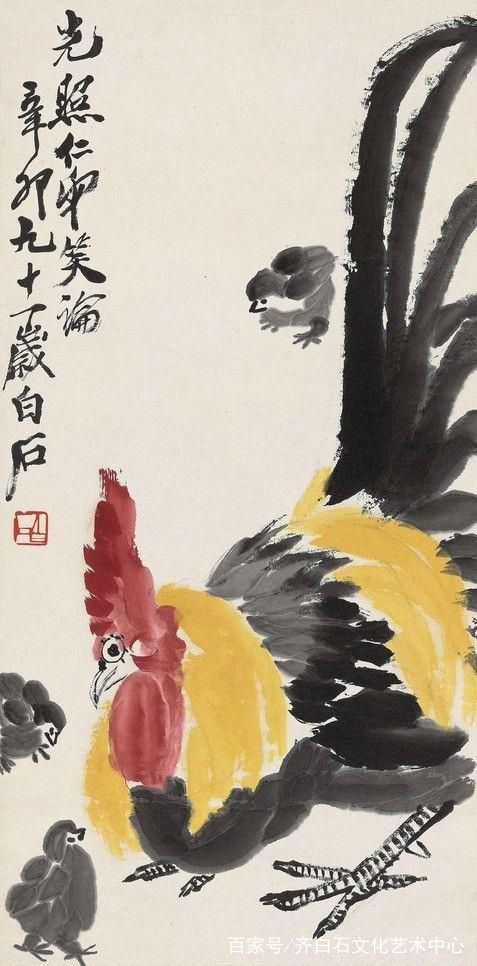 光照仁弟笑論
辛卯九十一歲白石
百家号/齐白石文化艺术中心